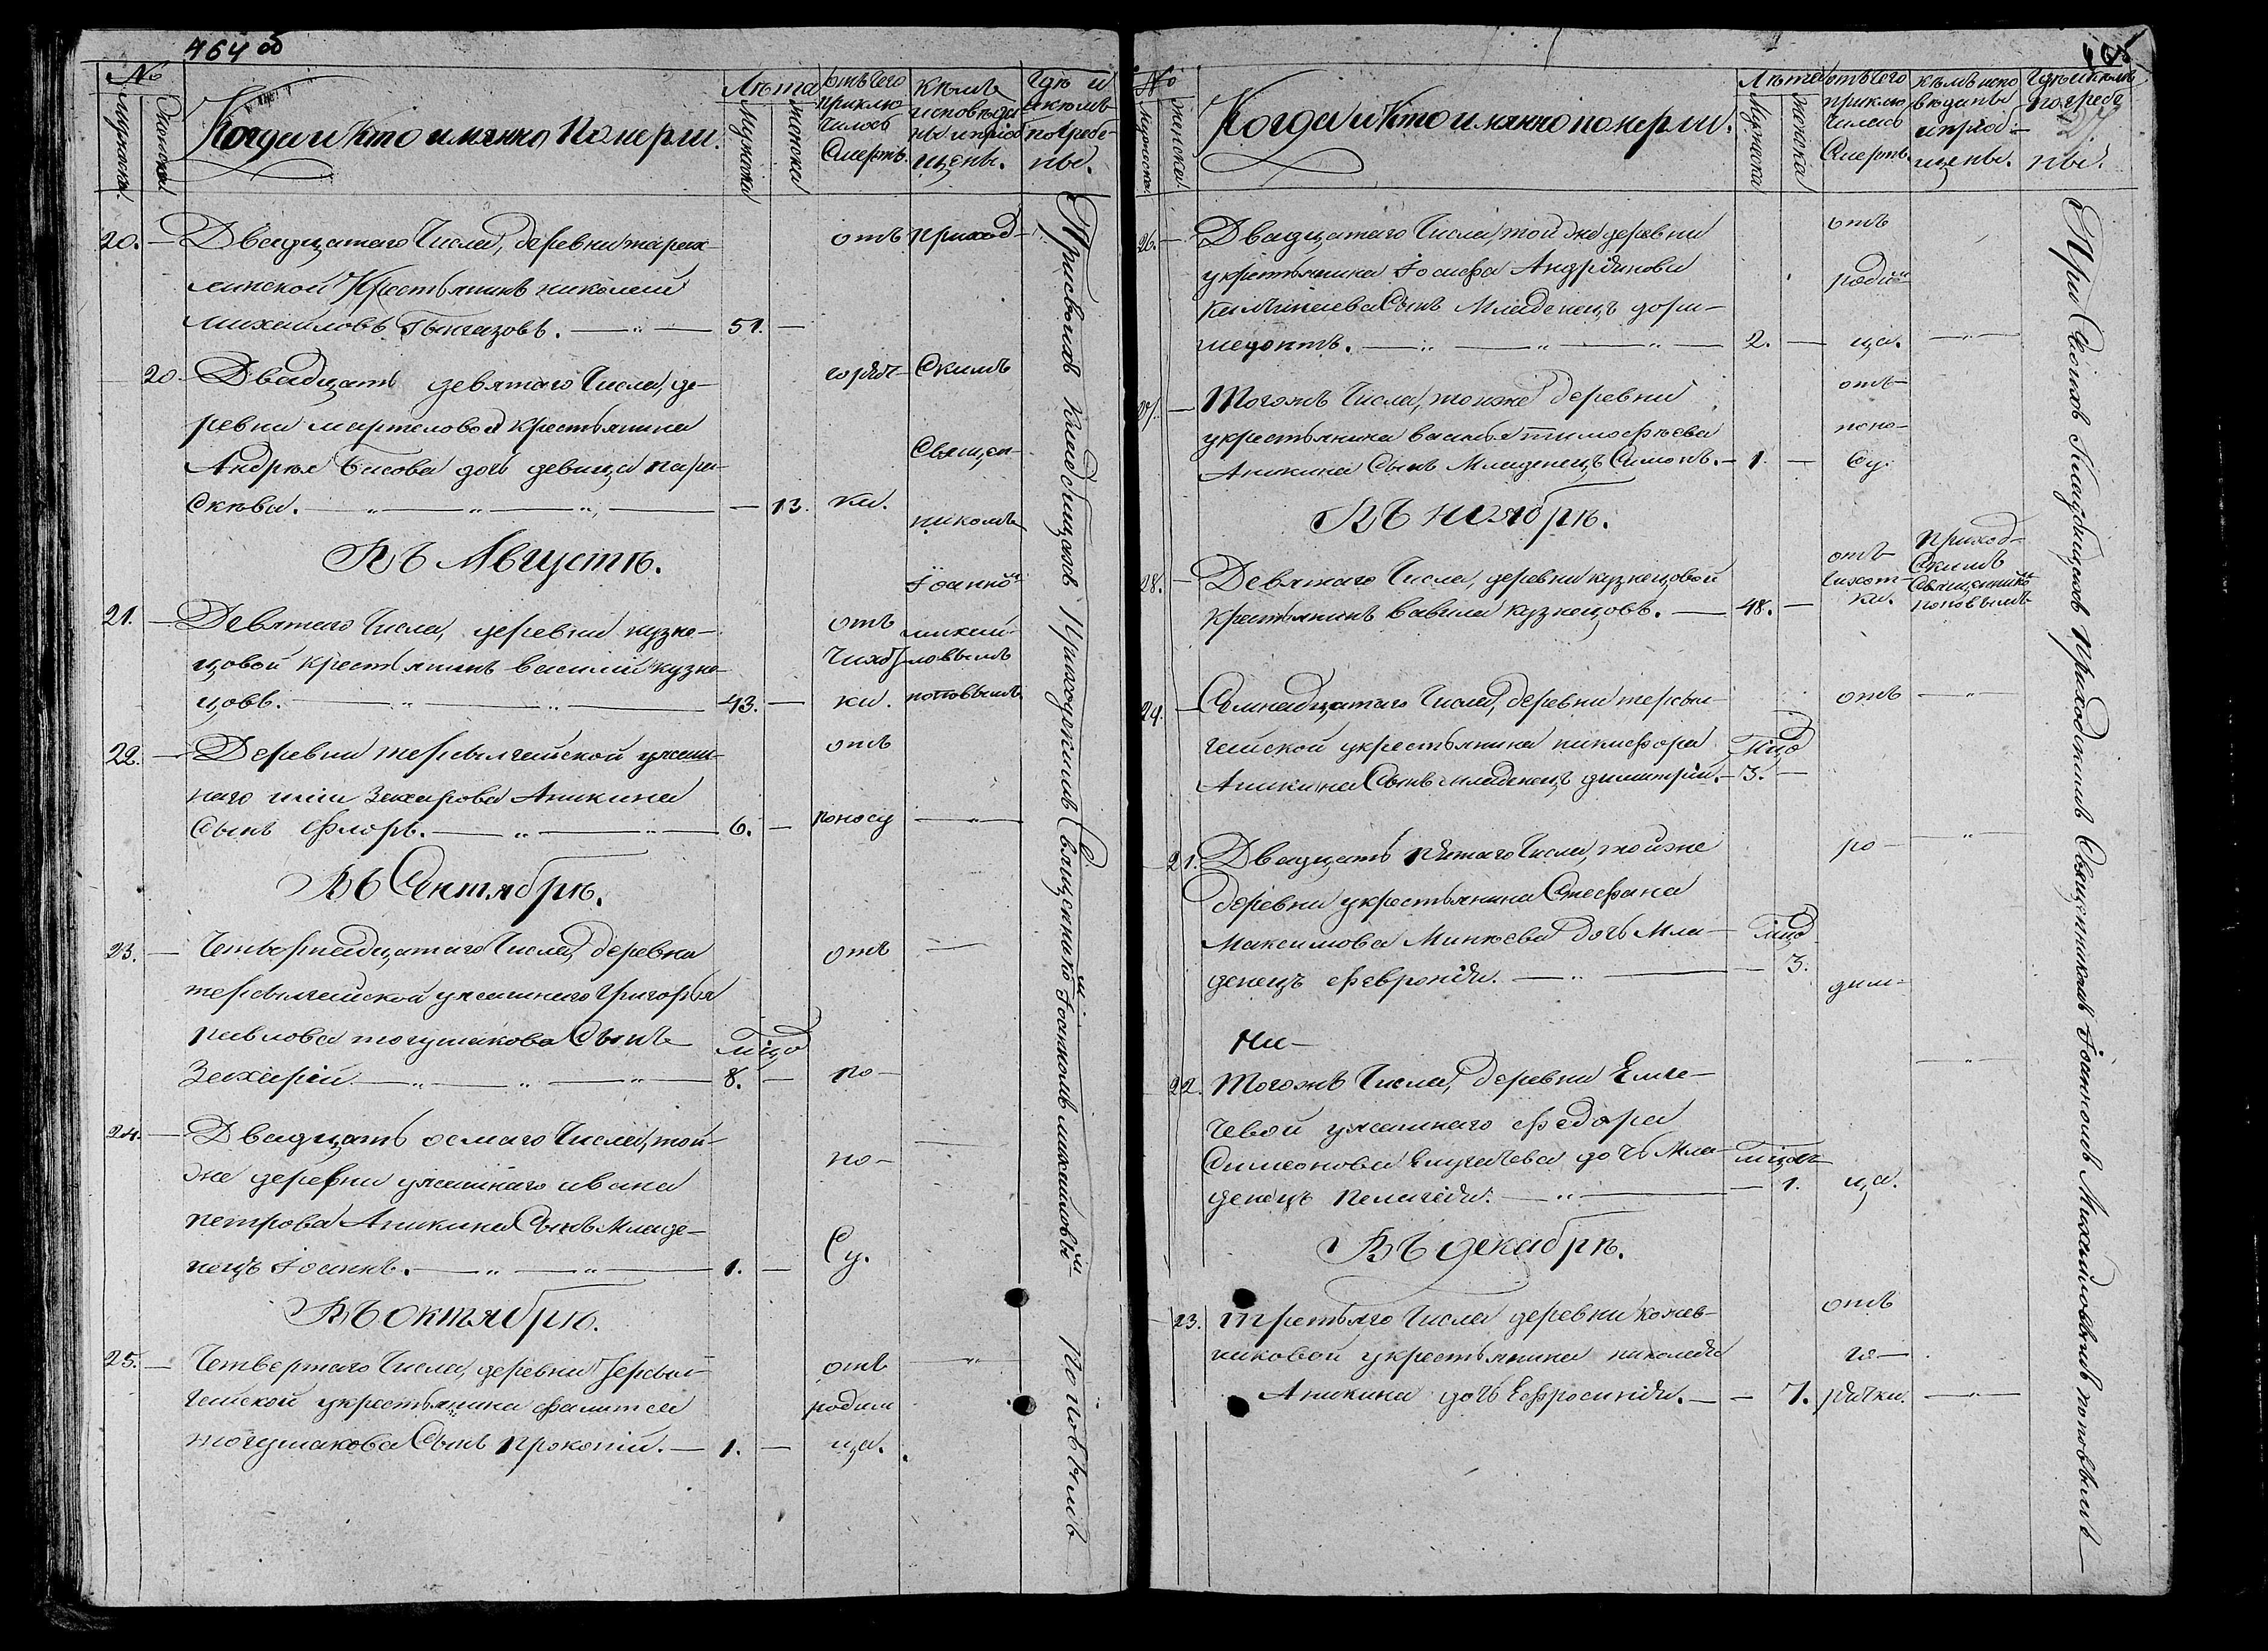 464 об
№
Мужеска.
Женска
Когда и кто имянно Померли.
Лѣта
Мужеска
Женска
отъ чего
приклю
чилась
Смерть.
Кѣмъ
исповѣда
ны и приоб
щены.
Гдѣ и
кѣмъ
погребе-
ны.
20. — Двадцатаго Числа, деревни
минской Крестьянинъ николай
михайловъ — 51. —
отъ
горяч-
ки.
20. Двадцать девятаго Числа, де-
ревни мартеловой крестьянина
Андрея Басова дочь девица пара-
скева. — 13.
приход-
скимъ
Священ-
никомъ
Іоанно м
михай-
ловымъ
поповымъ
Въ Августѣ.
21. — Девятаго Числа, деревни кузне-
цовой крестьянинъ василій кузне-
цовъ. — 43. —
отъ
Чихот
ки.
22. — Деревни ясаш-
наго Захарова Аникина
Сынъ Флоръ. — 6. —
отъ
поносу
Въ Сентябрѣ.
23. — Четвертнадцатаго Числа, деревни
ясашнаго Григорья
павлова тогушакова Сынъ
Захарій. — 8. —
отъ
по-
24. — Двадцать осмаго Числа, той-
же деревни ясашнаго ивана
петрова Аникина Сынъ Младе-
нецъ Іоаннъ. — 1. —
но-
Су.
Въ октябрѣ.
25. — Четвертаго Числа, деревни
укрестьянина
тогушакова Сынъ прокопій. — 1. —
отъ
родим
ца.
При своихъ кладбищахъ приходскимъ Священнико м Іоанномъ михайловы м поповымъ
465
№
Мужеска.
Женска.
Когда и кто имянно померли.
Лѣта
Мужеска
Женска
отъ чего
приклю
чилась
Смерть.
Кѣмъ испо
вѣданы
и приоб-
щены.
Гдѣ и кѣмъ
погребе
ны.
26. — Двадцатаго Числа, той же деревни
укрестьянина Іосифа Андріянова
Сынъ Младенецъ дори-
медонтъ. — 2. —
отъ
родим
ца.
27. — Тогожъ Числа, тоиже деревни
укрестьянина василья тимофѣева
Аникина Сынъ Младенецъ Симонъ. — 1. —
отъ
поно-
Су.
Въ ноябрѣ.
28. — Девятаго Числа, деревни кузнецовой
Крестьянинъ вавила кузнецовъ. — 48. —
отъ
чихот-
ки.
приход-
Скимъ
Священнико м
поповымъ
29. — Семнадцатаго Числа, деревни
укрестьянина никифора
Аникина Сынъ младенецъ димитрій. — 3. —
отъ
21. Двадцать пятаго Числа, тойже
деревни укрестьянина Стефана
Максимова Минѣева дочь Мла-
денецъ Февронія. — 3.
ро-
дим-
ни-
22. Тогожъ Числа, деревни Елга-
чевой ясашнаго Федора
Симеонова Елугачева дочь Мла-
денецъ пелагея. — 1.
ца.
Въ декабрѣ.
23. Третьяго Числа деревни кожев-
никовой укрестьянина николая
Аникина дочь Ефросинія. — 7.
отъ
го-
рячки.
При Своихъ Кладбищахъ Приходскимъ Священникомъ Іоанномъ Михайловымъ поповымъ